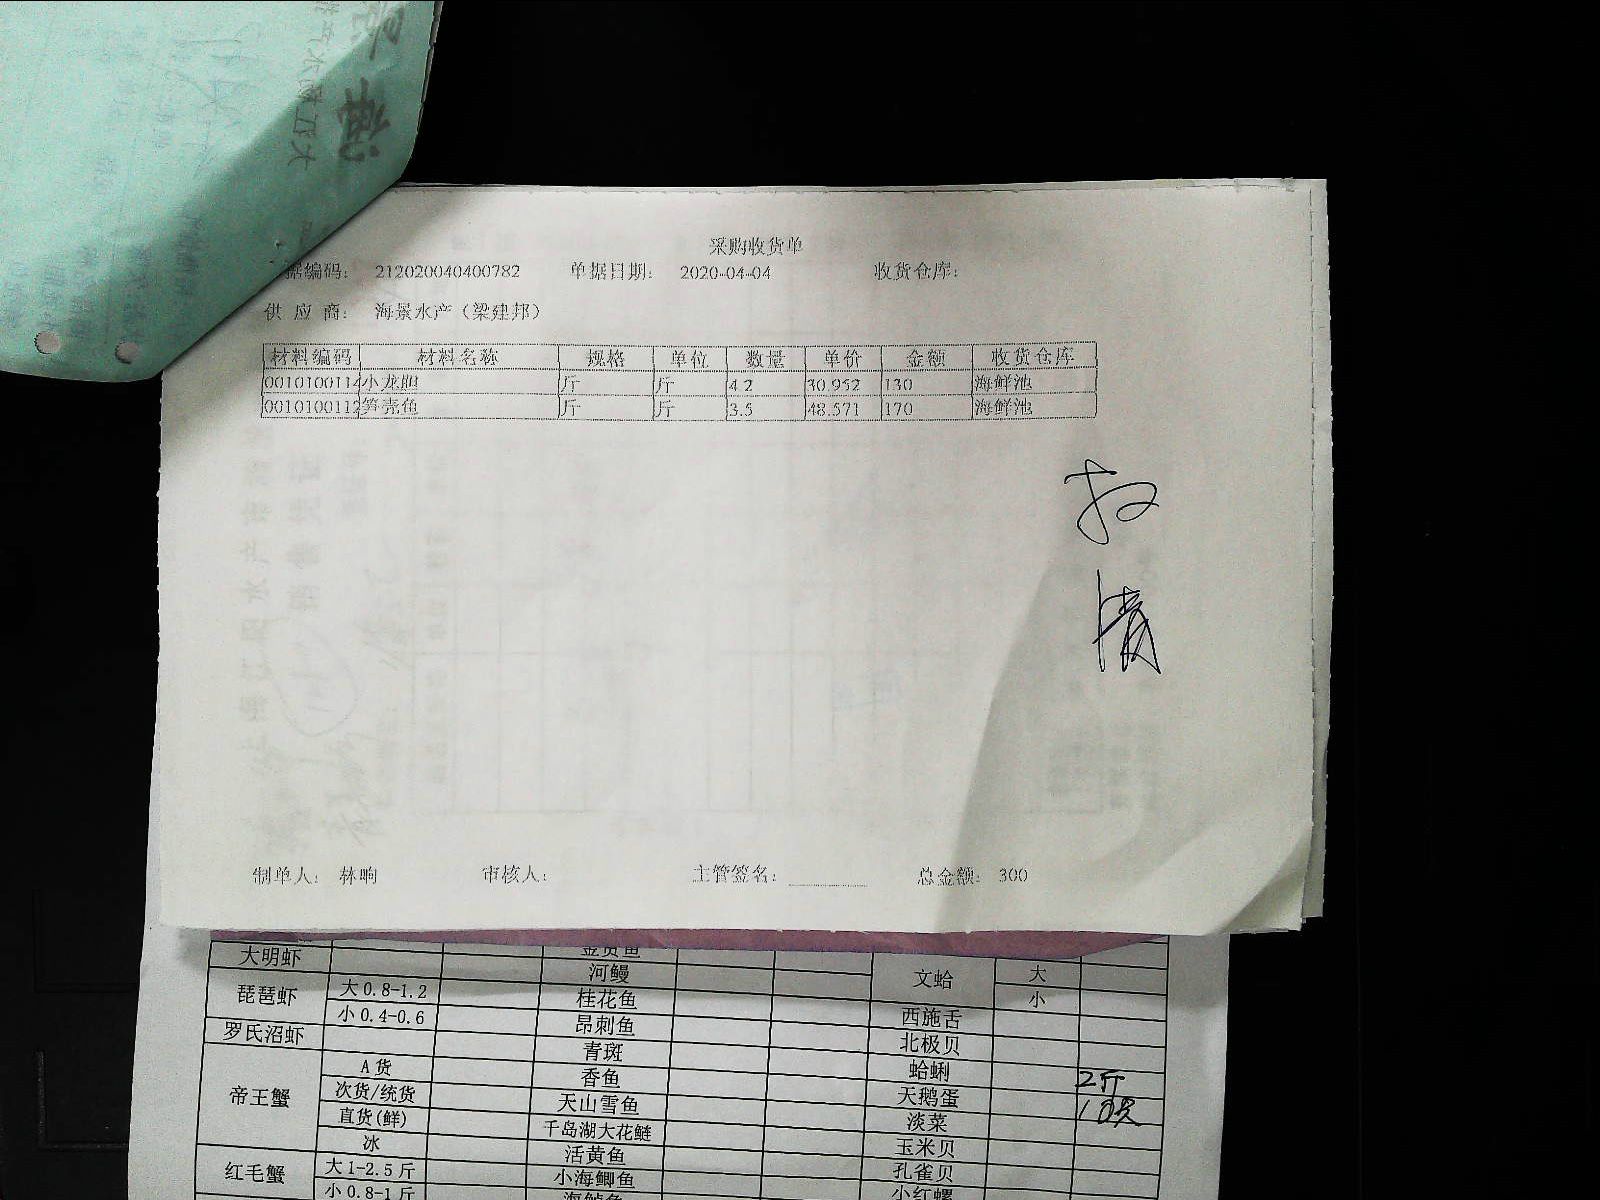 采购收货单
据编码： 212020040400782 单据日期： 2020-04-04 收货仓库：
供 应 商： 海景水产（梁建邦）
材料编码 材料名称 规格 单位 数量 单价 金额 收货仓库
0010100114 小龙胆 斤 斤 4.2 30.952 130 海鲜池
0010100112 笋壳鱼 斤 斤 3.5 48.571 170 海鲜池
制单人： 林响 审核人： 主管签名： 总金额： 300
大明虾 金贡鱼
河鳗 文蛤 大
琵琶虾 大0.8-1.2 桂花鱼 小
小0.4-0.6 昂刺鱼 西施舌
罗氏沼虾 青斑 北极贝
帝王蟹 A货 香鱼 蛤蜊 2斤
次货/统货 天山雪鱼 天鹅蛋
直货(鲜) 千岛湖大花鲢 淡菜
冰 活黄鱼 玉米贝
红毛蟹 大1-2.5斤 小海鲫鱼 孔雀贝
小0.8-1斤 海鲈鱼 小红螺